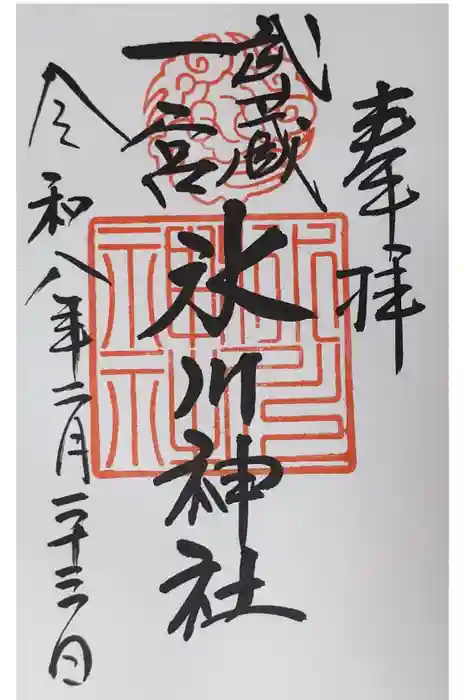 奉拝
武蔵
一宮
氷川神社
令和八年二月二十三日